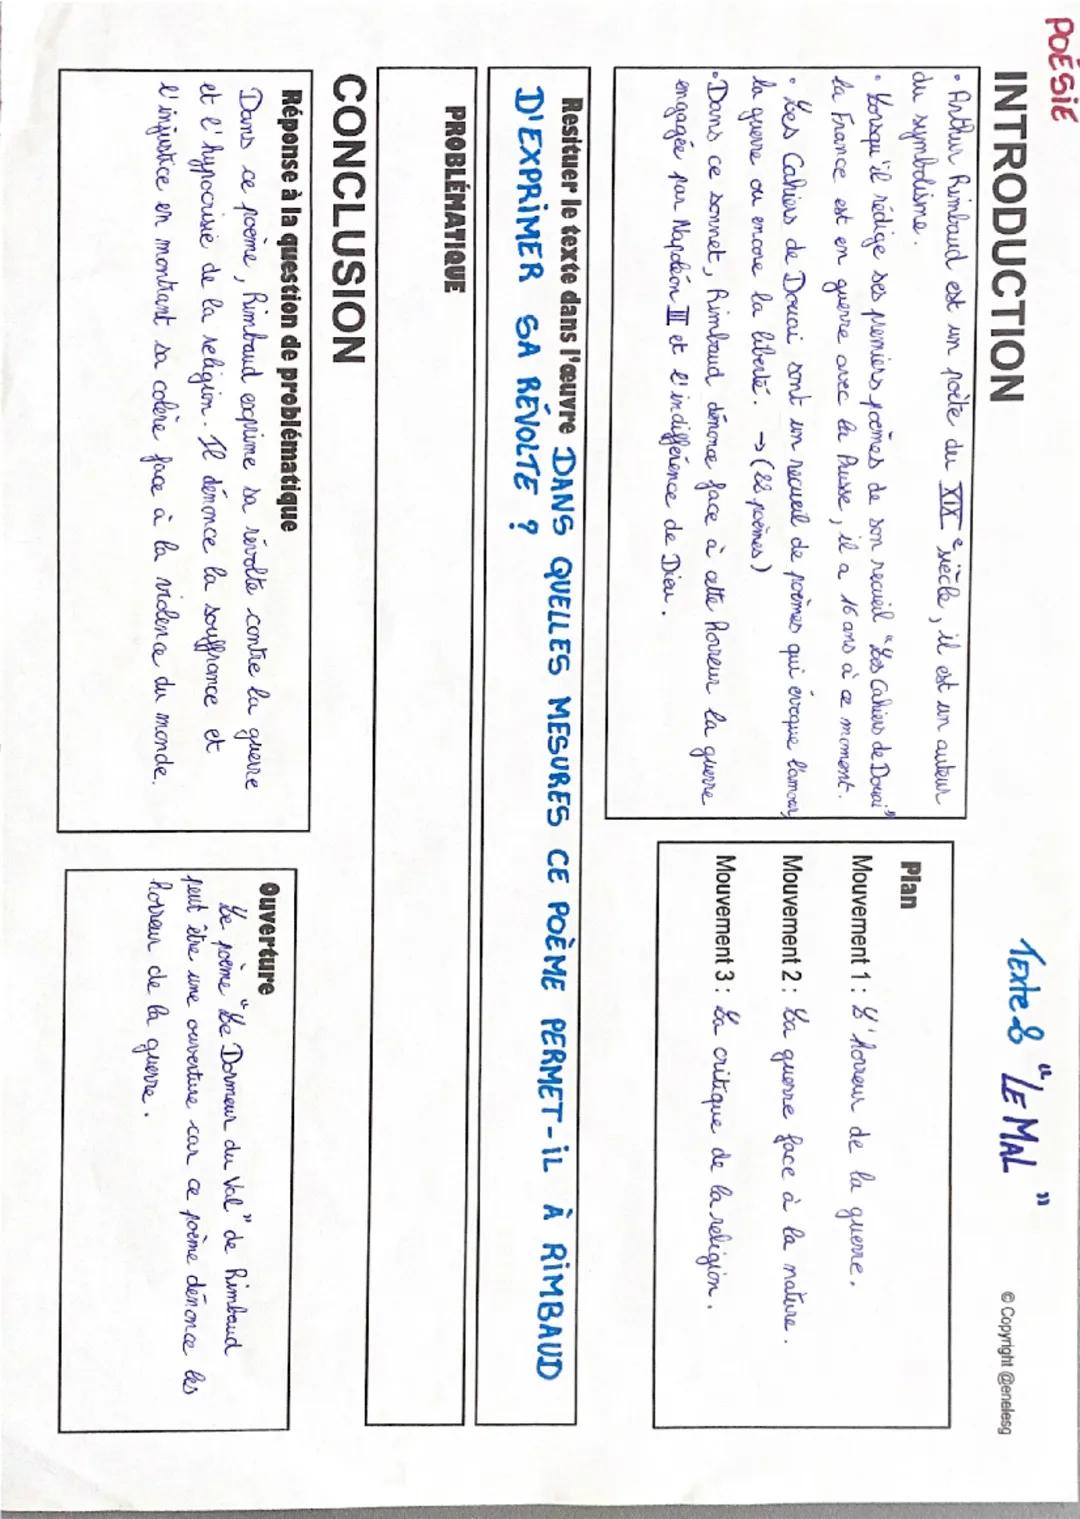 POÉSIE
Texte 8 "LE MAL"
© Copyright @enelesg
INTRODUCTION
• Arthur Rimbaud est un poète du XIXe siècle, il est un auteur
du symbolisme.
• Lorsqu'il rédige ses premiers poèmes de son recueil "Les Cahiers de Douai"
la France est en guerre avec la Prusse, il a 16 ans à ce moment.
• Les Cahiers de Douai sont un recueil de poèmes qui évoque l'amour,
la guerre ou encore la liberté. → (22 poèmes)
• Dans ce sonnet, Rimbaud dénonce face à cette horreur la guerre
engagée par Napoléon III et l'indifférence de Dieu.
Plan
Mouvement 1 : L'horreur de la guerre.
Mouvement 2 : La guerre face à la nature.
Mouvement 3 : La critique de la religion.
Resituer le texte dans l'œuvre DANS QUELLES MESURES CE POÈME PERMET-IL À RIMBAUD
D'EXPRIMER SA RÉVOLTE ?
PROBLÉMATIQUE
CONCLUSION
Réponse à la question de problématique
Dans ce poème, Rimbaud exprime sa révolte contre la guerre
et l'hypocrisie de la religion. Il dénonce la souffrance et
l'injustice en montrant sa colère face à la violence du monde.
Ouverture
Le poème "Le Dormeur du Val" de Rimbaud
peut être une ouverture car ce poème dénonce les
horreur de la guerre.